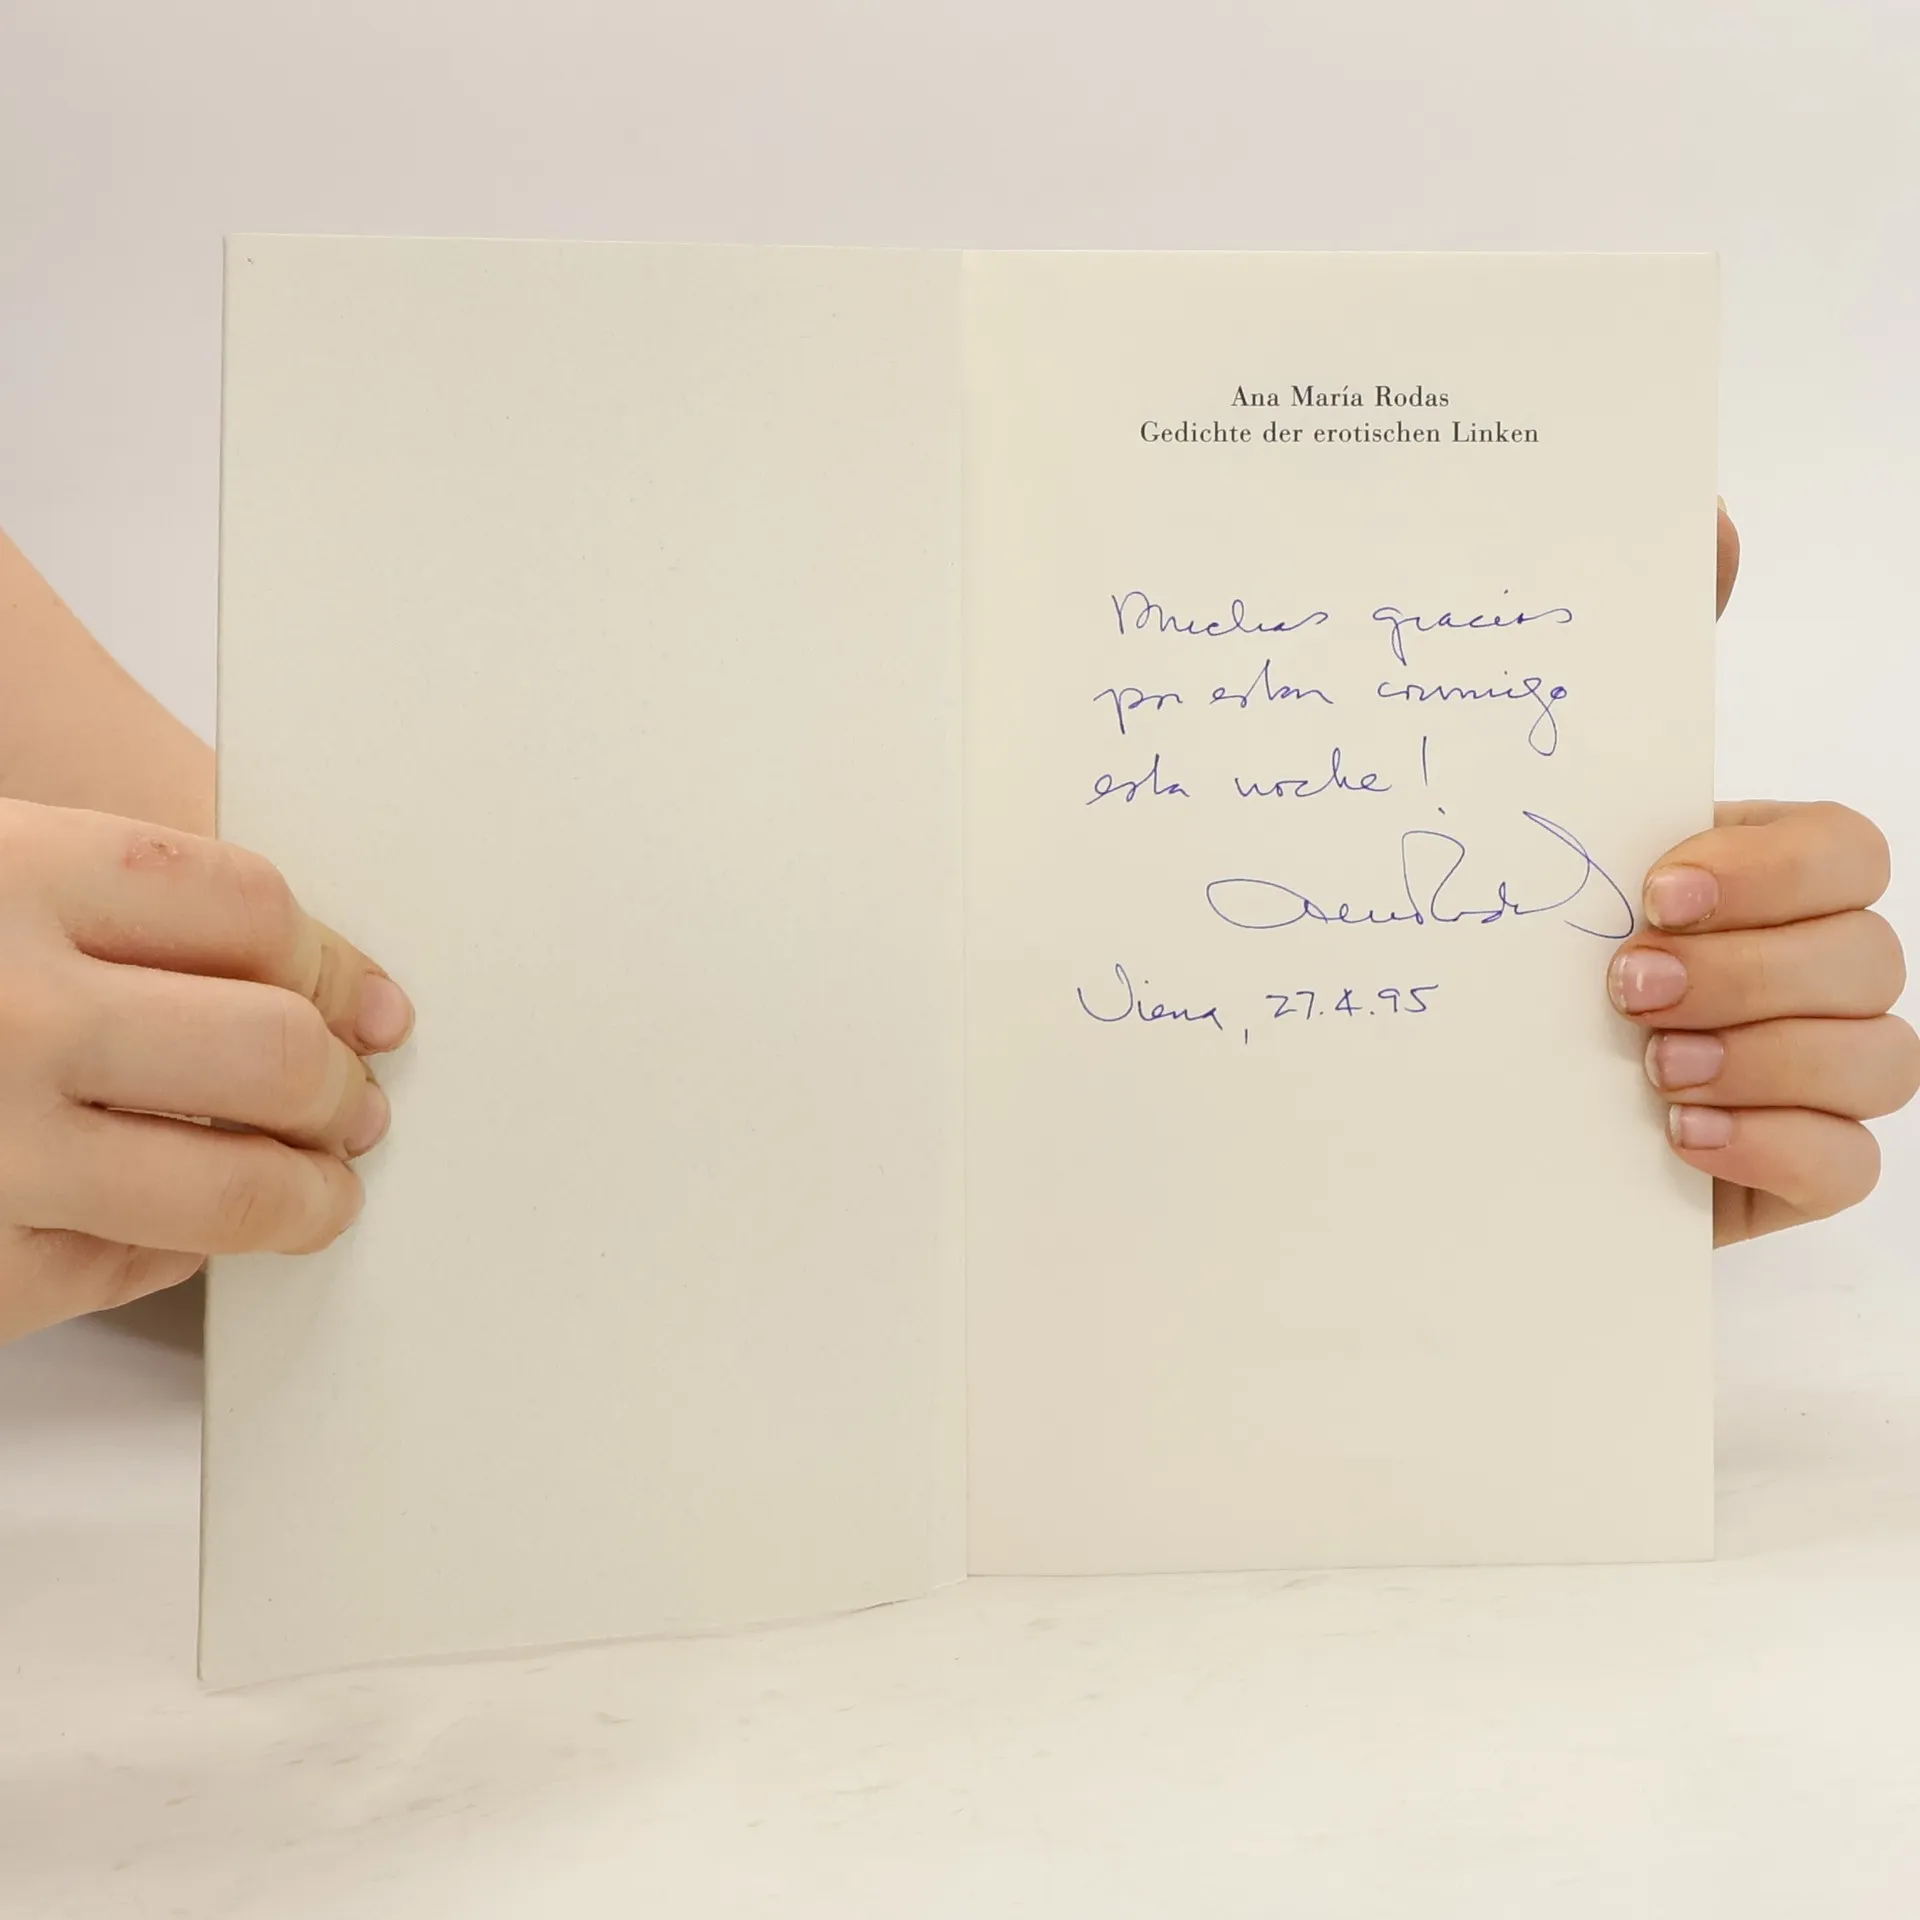 Ana María Rodas
Gedichte der erotischen Linken
Muchas gracias
por estar conmigo
esta noche!
Viena, 27.4.95